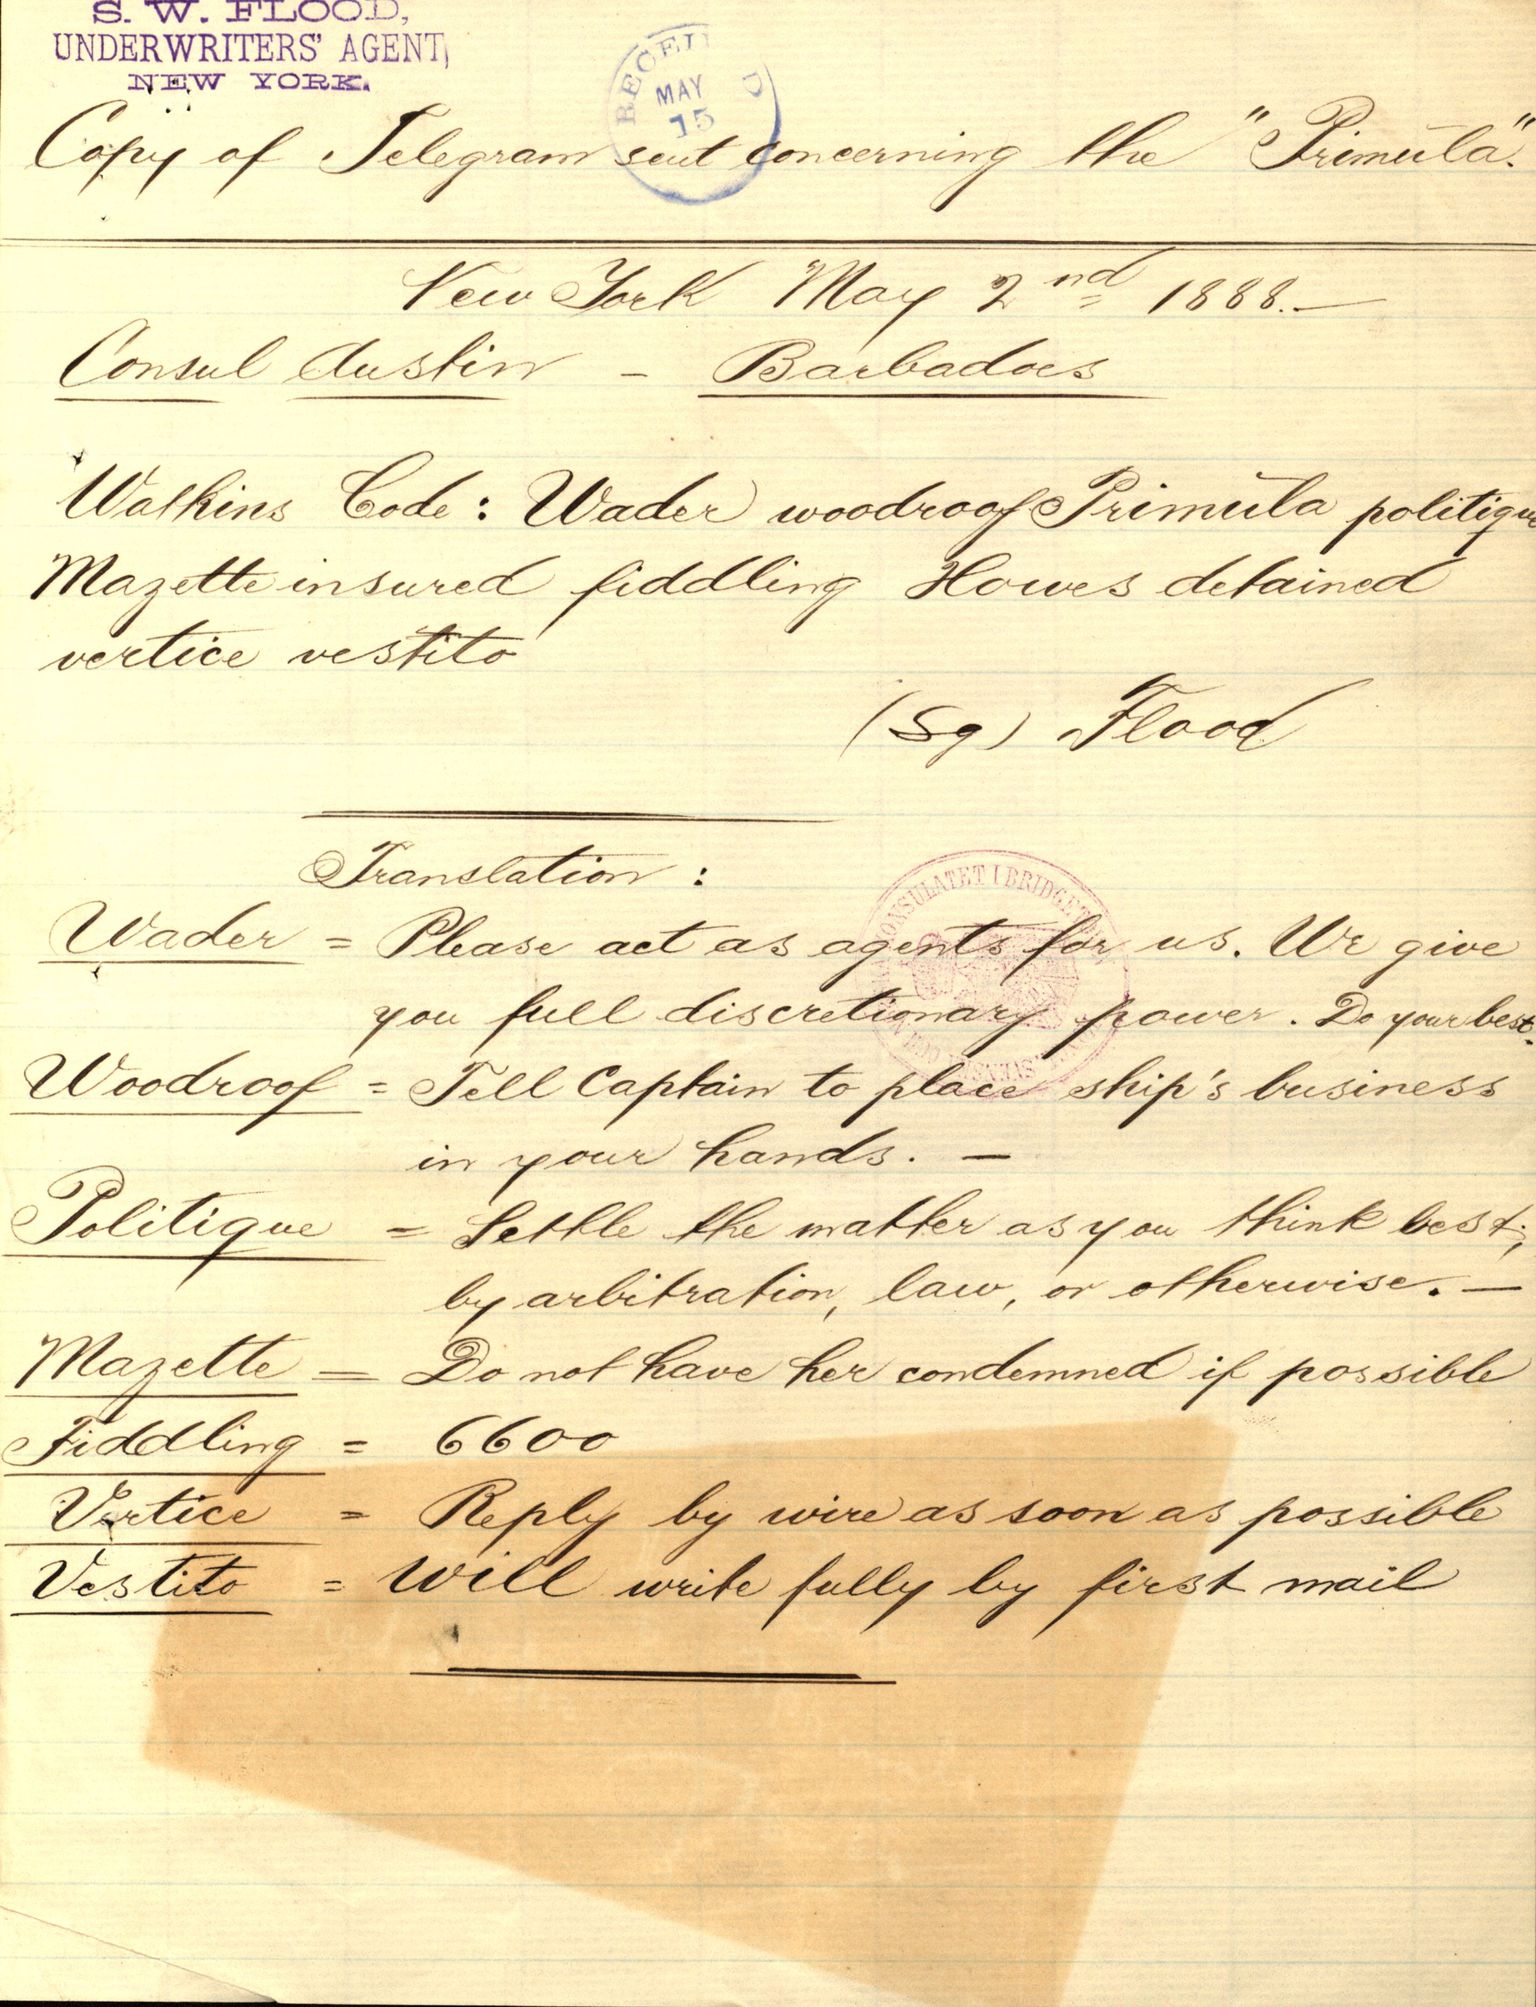 S. W. FLOOD,
UNDERWRITERS' AGENT,
NEW YORK.
RECEI D
MAY
15
Copy of Telegram sent concerning the "Primula".
New York May 2nd 1888.—
Consul Austin – Barbadoes
Watkins Code: Wader woodroof Primula politique
Mazette insured fiddling Howes detained
vertice vestito
(Sg) Flood
Translation:
Wader = Please act as agents for us. We give
you full discretionary power. Do your best.
Woodroof = Tell Captain to place ship's business
in your hands. —
Politique = Settle the matter as you think best,
by arbitration, law, or otherwise. —
Mazette = Do not have her condemned if possible
Fiddling = 6600
Vertice = Reply by wire as soon as possible
Vestito = Will write fully by first mail
CONSULATET I BRIDGET